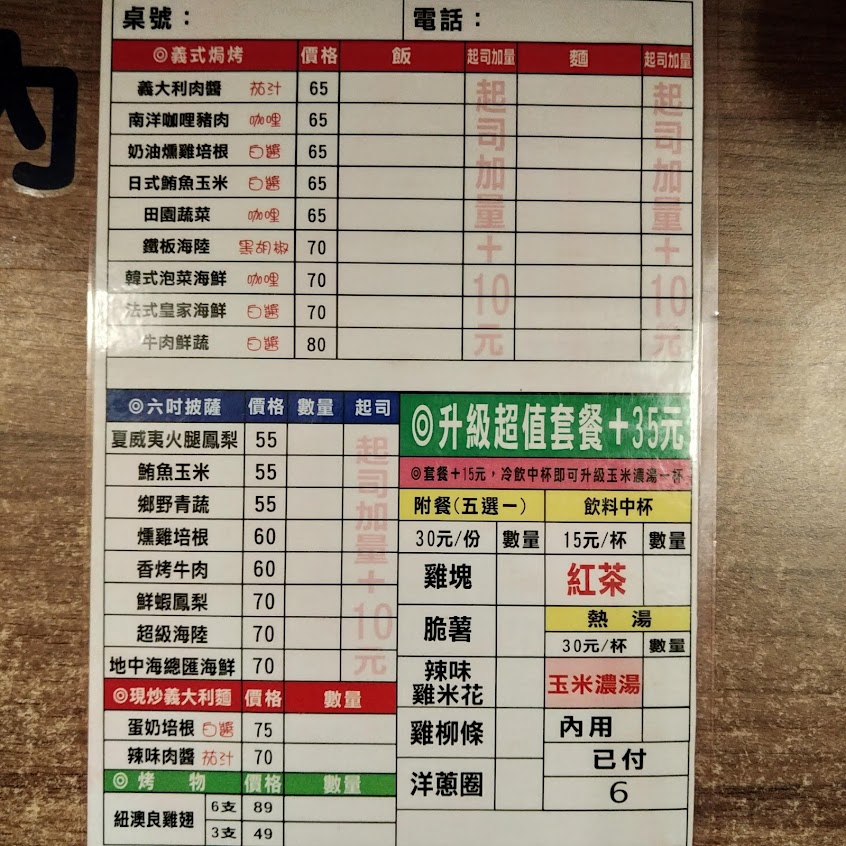 內
桌號： 電話：
◎義式焗烤 價格 飯 起司加量 麵 起司加量
義大利肉醬 茄汁 65
南洋咖哩豬肉 咖哩 65
奶油燻雞培根 白醬 65
日式鮪魚玉米 白醬 65
田園蔬菜 咖哩 65
鐵板海陸 黑胡椒 70
韓式泡菜海鮮 咖哩 70
法式皇家海鮮 白醬 70
牛肉鮮蔬 白醬 80
起司加量＋10元
起司加量＋10元
◎六吋披薩 價格 數量 起司
夏威夷火腿鳳梨 55
鮪魚玉米 55
鄉野青蔬 55
燻雞培根 60
香烤牛肉 60
鮮蝦鳳梨 70
超級海陸 70
地中海總匯海鮮 70
起司加量＋10元
◎現炒義大利麵 價格 數量
蛋奶培根 白醬 75
辣味肉醬 茄汁 70
◎烤 物 價格 數量
紐澳良雞翅
6支 89
3支 49
◎升級超值套餐＋35元
◎套餐＋15元，冷飲中杯即可升級玉米濃湯一杯
附餐(五選一) 飲料中杯
30元/份 數量 15元/杯 數量
雞塊 紅茶
脆薯 熱 湯
30元/杯 數量
辣味
雞米花
玉米濃湯
雞柳條 內用
已付
洋蔥圈 6